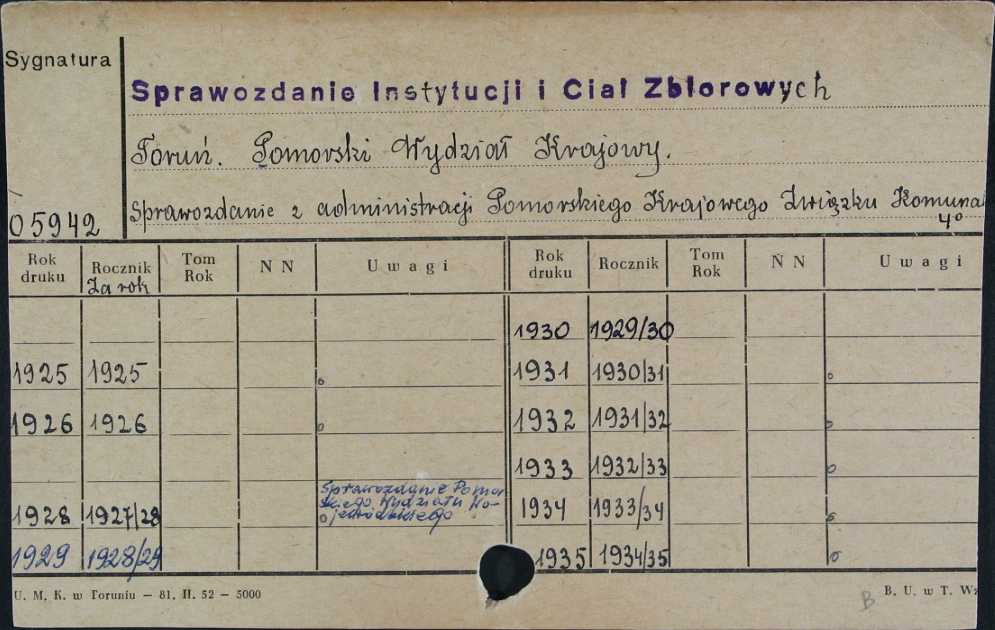 Sygnatura
Sprawozdanie Instytucji i Ciał Zbiorowych
Toruń. Pomorski Wydział Krajowy.
05942
Sprawozdanie z administracji Pomorskiego Krajowego Związku Komuna
4°
Rok druku Rocznik Tom Rok N N Uwagi Rok druku Rocznik Tom Rok N N Uwagi
Za rok
1930 1929/30
1925 1925 o 1931 1930/31 o
1926 1926 o 1932 1931/32 o
1933 1932/33 o
Sprawozdanie Pomor
skiego Wydziału Wo-
1928 1927/28 o jewódzkiego 1934 1933/34 o
1929 1928/29 1935 1934/35 o
U. M. K. w Toruniu — 81. II. 52 — 5000
B
B. U. w T. Wz